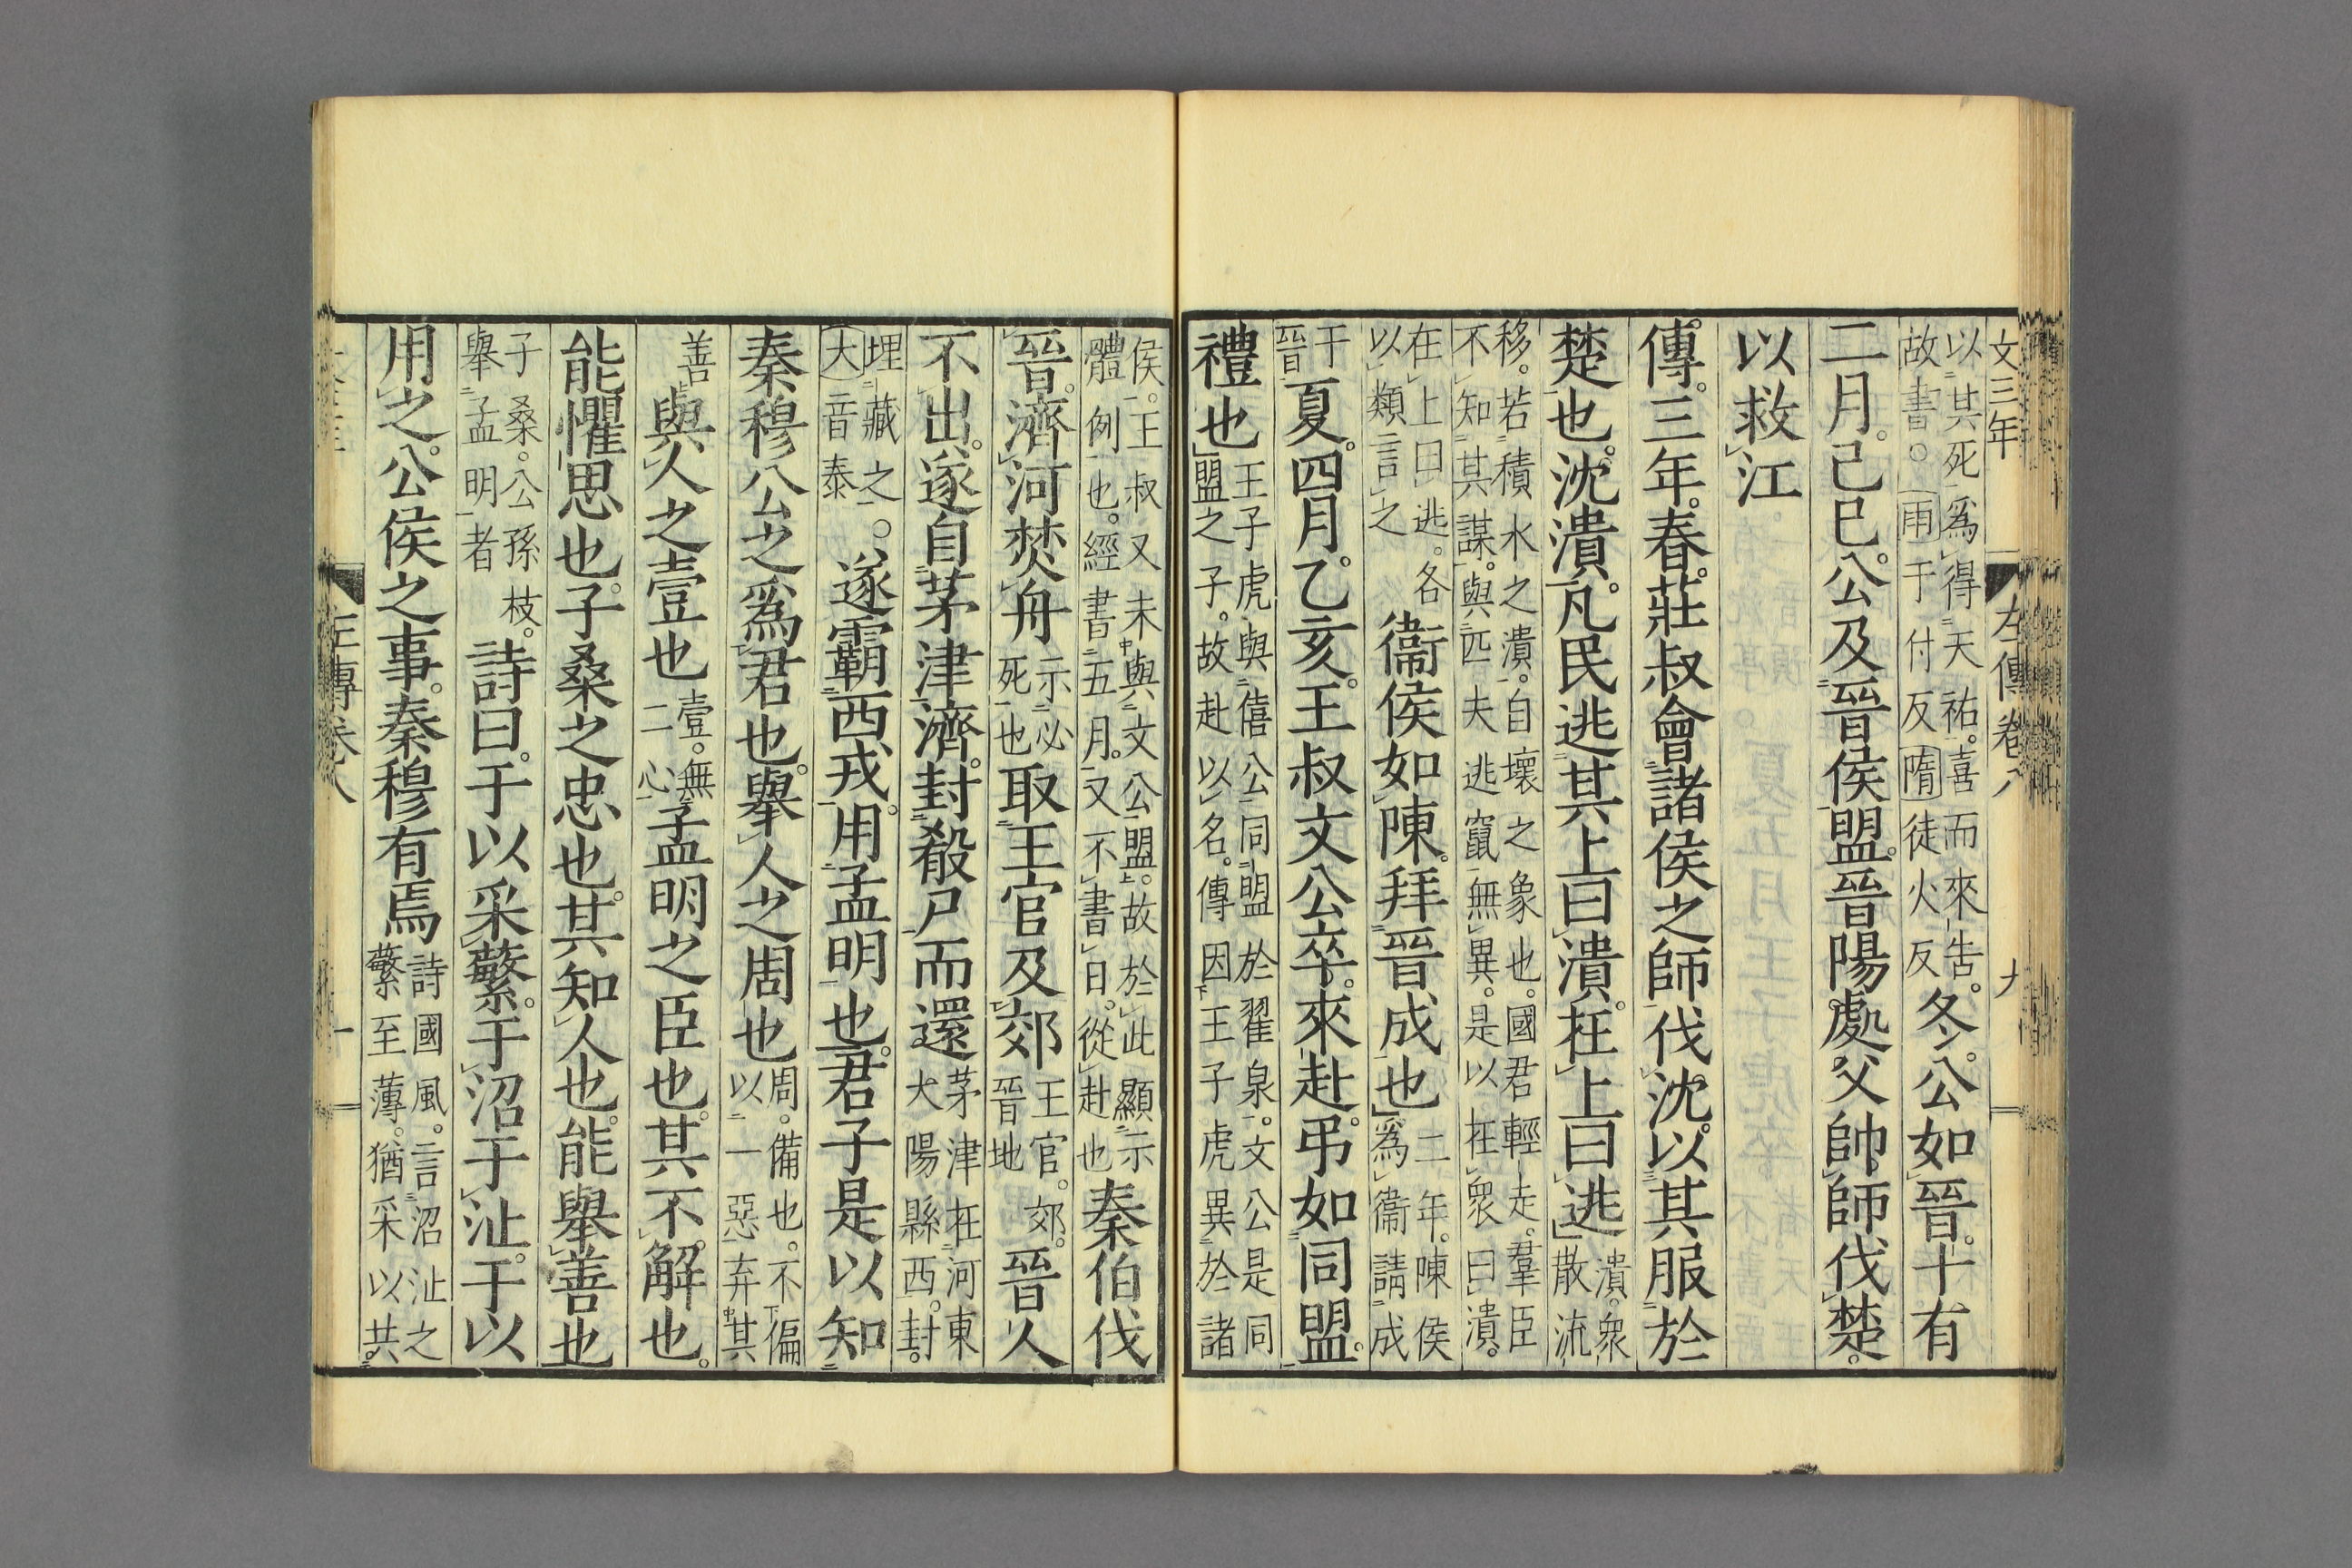 文三年 左傳卷八 九
以其死爲得天祐。喜而來告。
故書。○雨于付反隋徒火反
冬。公如晉。十有
二月。己巳。公及晉侯盟。晉陽處父帥師伐楚。
以救江
傳。三年。春。莊叔會諸侯之師伐沈。以其服於
楚也。沈潰。凡民逃其上曰潰。在上曰逃
潰。衆
散流
移。若積水之潰。自壞之象也。國君輕走。羣臣
不知其謀。與匹夫逃竄無異。是以在衆曰潰。
在上曰逃。各
以類言之
衞侯如陳。拜晉成也
二年。陳侯
爲衞請成
于
晉
夏。四月。乙亥。王叔文公卒。來赴。弔如同盟。
禮也
王子虎與僖公同盟於翟泉。文公是同
盟之子。故赴以名。傳因王子虎異於諸
侯。王叔又未與文公盟。故於此顯示
體例也。經書五月。又不書日。從赴也
秦伯伐
晉。濟河焚舟
示必
死也
取王官及郊
王官。郊。
晉地
晉人
不出。遂自茅津濟。封殽尸而還
茅津在河東
大陽縣西。封。
埋藏之。○
大音泰
遂霸西戎。用孟明也。君子是以知
秦穆公之爲君也。舉人之周也
周。備也。不偏
以一惡弃其
善
與人之壹也
壹。無
二心
孟明之臣也。其不解也。
能懼思也。子桑之忠也。其知人也。能舉善也
子桑。公孫枝。
舉孟明者
詩曰。于以采蘩。于沼于沚。于以
用之。公侯之事。秦穆有焉
詩國風。言沼沚之
蘩至薄。猶采以共。
左傳卷八